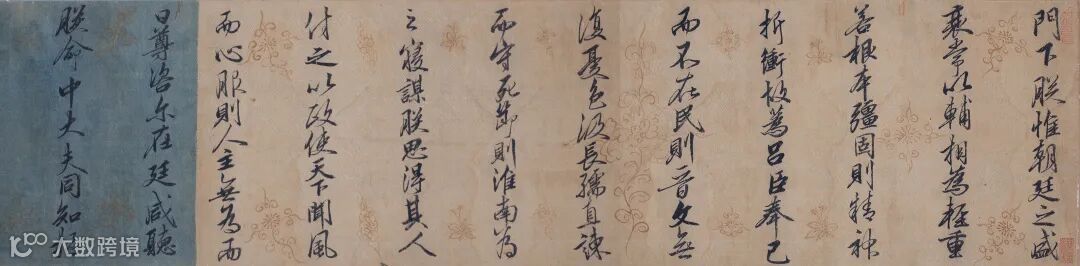 門下朕惟朝廷之盛
衰常以輔相為輕重
若根本彊固則精神
折衝故蒍呂臣奉己
而不在民則晉文無
復憂色汲長孺直諫
而守死節則淮南為
之寢謀朕思得其人
付之以政使天下聞風
而心服則人主無為而
日尊咨尔在廷咸聽
朕命中大夫同知樞
大数跨境